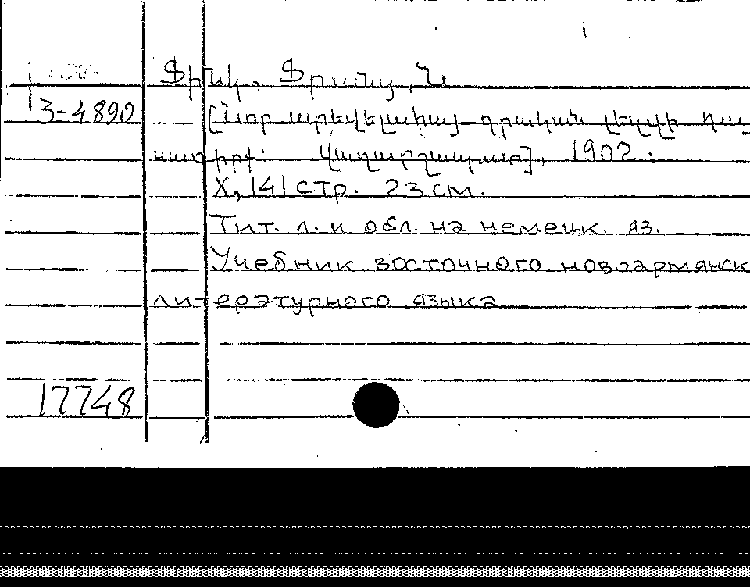 Ֆինկ, Ֆրանց, Ն.
3-4890 [Նոր արեվելահայ գրական լեզվի դա
սագիրք: Վաղարշապատ], 1902:
X, 141 стр. 23 см.
Тит. л. и обл. на немецк. яз.
Учебник восточного новоармянск
литературного языка
17748